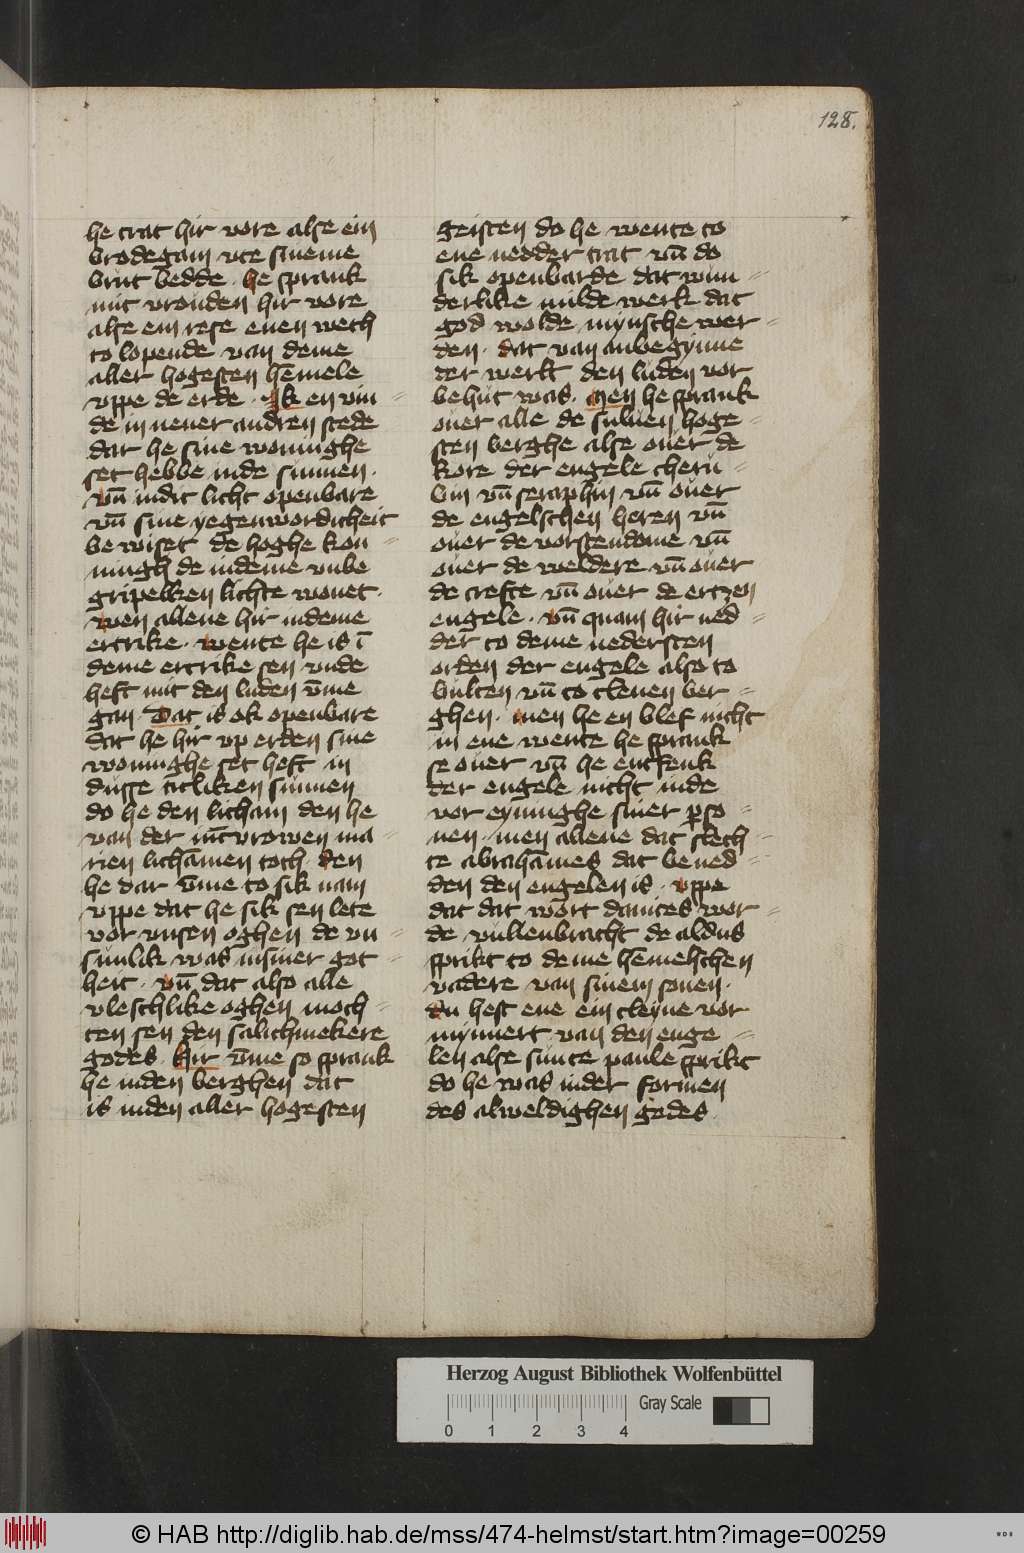 128.
he trat hir vore alse ein
brodegam vte sineme
brut bedde · he sprank
mit vrouden hir vore
alse ein rese enen wech
to lopende van deme
aller hogesten hemele
vppe de erde · Ik en vin=
de in nener andren stede
dar he sine woninghe
set hebbe inde sunnen ·
vn̄ indit licht openbare
vn̄ sine yegenwordicheit
be wiset de hoghe kon=
ningh de indeme vnbe
gripelken lichte wonet ·
wen allene hir indeme
ertrike · wente he is ī
deme ertrike sen vnde
heft mit den luden v̄me
gan · Dat is ok openbare
dat he hir vp erden sine
woninghe set heft in
dusse titliken sunnen
do he den licham den he
van der iūcvrowen ma=
rien lichāmen toch · den
he dar v̄me to sik nam
vppe dat he sik sen lete
vor vnsen oghen de vn=
sunlik was insiner got=
heit · vn̄ dat also alle
vleschlike oghen moch=
ten sen den salichmekere
godes · Hir v̄me so sprank
he inden berghen dat
is inden aller hogesten
geisten do he wente to
ene nedder trat vn̄ do
sik openbarde dat wun=
derlike milde werk dat
god wolde mynsche wer=
den · dat van anbegynne
der werlt den luden vor
behut was · men he sprank
ouer alle de suluen hoge=
sten berghe alse ouer de
kore der engele cheru=
bin vn̄ seraphin vn̄ ouer
de engelschen heren vn̄
ouer de vorstendome vn̄
ouer de weldere vn̄ ouer
de crefte vn̄ ouer de ertzen
engele · vn̄ quam hir ned=
der to deme nedersten
orden der engele also to
bulten vn̄ to clenen ber=
ghen · men he en blef nicht
in ene wente he sprank
se ouer vn̄ he entfenk
der engele nicht inde
vor eyninghe siner p̱so=
nen · men allene dat slech=
te abrahāmes dat bened=
den den engelen is · vppe
dat dat wort dauites wor=
de vullenbracht de aldus
sprikt to deme hēmelschen
vadere van sinem sonen ·
du hest ene ein cleyne vor
mynnert van den enge=
len alse sunte paule sprikt
do he was inder formen
des alweldighen godes ·
Herzog August Bibliothek Wolfenbüttel
0 1 2 3 4
Gray Scale
© HAB http://diglib.hab.de/mss/474-helmst/start.htm?image=00259
WDB